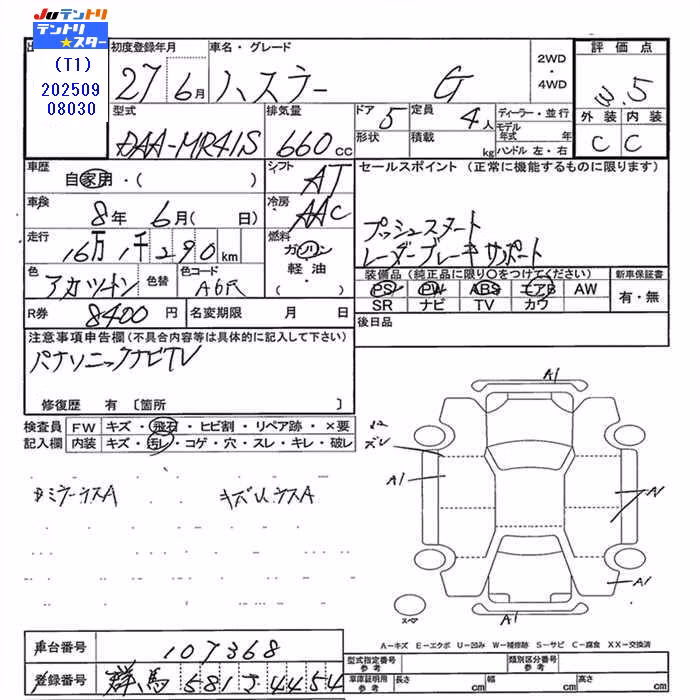 Juテントリ
テントリ★スター
(T1)
202509
08030
初度登録年月
27年6月
車名・グレード
ハスラー G
2WD・4WD
評価点
W.5
外装 内装
C C
型式
DAA-MR41S
排気量
660cc
ドア 5
形状
定員 4人
積載 kg
ディーラー・並行
モデル年式 年
ハンドル 左・右
車歴
自家用・( )
シフト
AT
車検
8年 6月( 日)
冷房
AAC
走行
16万1千290km
燃料
ガソリン
軽油
( )
色
アカツートン
色替
色コード
A6R
R券 8400円
名変期限 月 日
セールスポイント (正常に機能するものに限ります)
プッシュスタート
レーダーブレーキサポート
装備品 (純正品に限り○をつけてください)
PS PW ABS エアB AW
SR ナビ TV カワ
新車保証書
有・無
後日品
注意事項申告欄 (不具合内容等は具体的に記入して下さい)
パナソニックナビTV
修復歴 有 〔箇所 〕
検査員 記入欄
FW キズ・飛石・ヒビ割・リペア跡・×要
内装 キズ・汚レ・コゲ・穴・スレ・キレ・破レ
A1
ズレ
A1
A1
A1
スペア
A-キズ E-エクボ U-凹み W-補修跡 S-サビ C-腐食 XX-交換済
車台番号 107368
登録番号 群馬 581 さ 4454
型式指定番号 参考
類別区分番号 参考
車庫証明用 参考
長さ cm
幅 cm
高さ cm